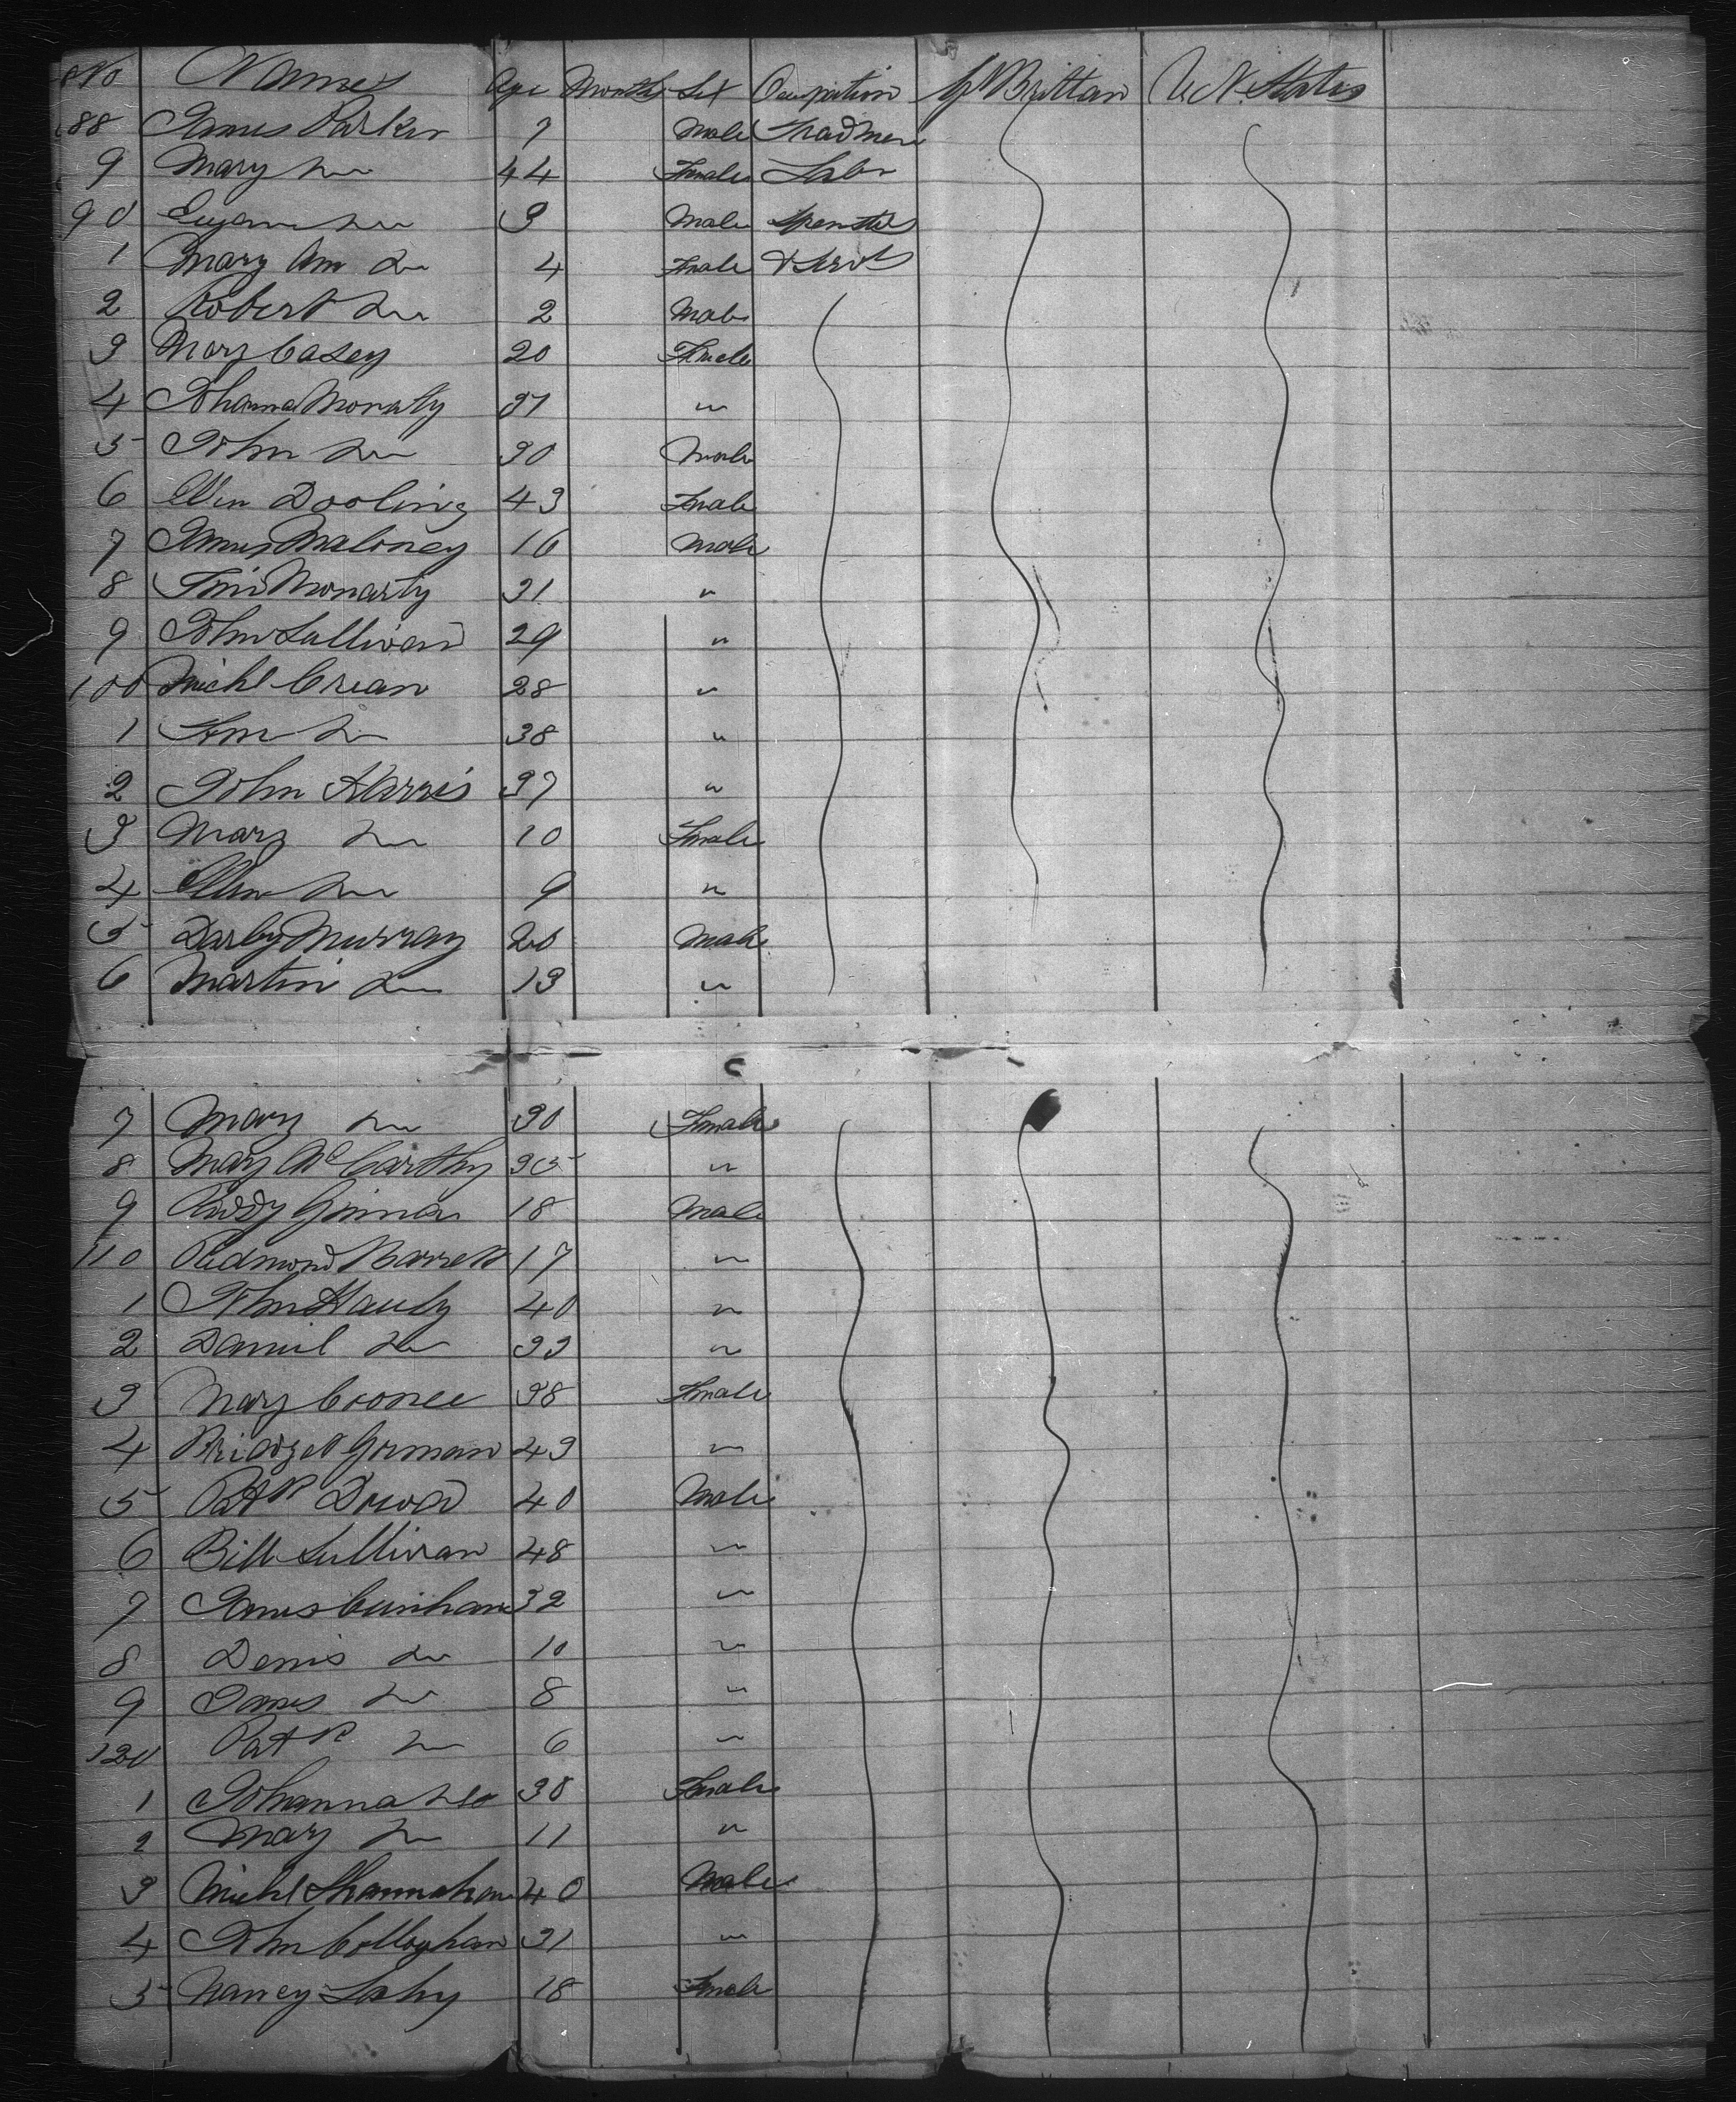 No Names Age Months Sex Occupation Gt Brittan U. N. States
88 James Parker 7 Male Tradmen
9 Mary Do 44 Female Labr
90 Do 3 Male Spinster
1 Mary Ann Do 4 Female & Servts
2 Robert Do 2 Male
3 Mary Casey 20 Female
4 Johanna Moriarty 31 "
5 John Do 30 Male
6 Ellen Dooling 43 Female
7 James Maloney 16 Male
8 Tim Moriarty 31 "
9 John Sullivan 29 "
100 Michl Crean 28 "
1 Do 38 "
2 John Harris 37 "
3 Mary Do 10 Female
4 Ellen Do 9 "
5 Darby Murray 20 Male
6 Martin Do 13 "
7 Mary Do 30 Female
8 Mary McCarthy 35 "
9 Paddy 18 Male
110 Redmond Barrett 17 "
1 John 40 "
2 Daniel Do 33 "
3 Mary 38 Female
4 Bridget Gorman 43 "
5 Patk 40 Male
6 Bill Sullivan 48 "
7 James 32 "
8 Denis Do 10 "
9 James Do 8 "
120 Patk Do 6 "
1 Johanna Do 30 Female
2 Mary Do 11 "
3 Michl Shannahan 40 Male
4 John Colloghan 31 "
5 Nancy Lahy 18 Female